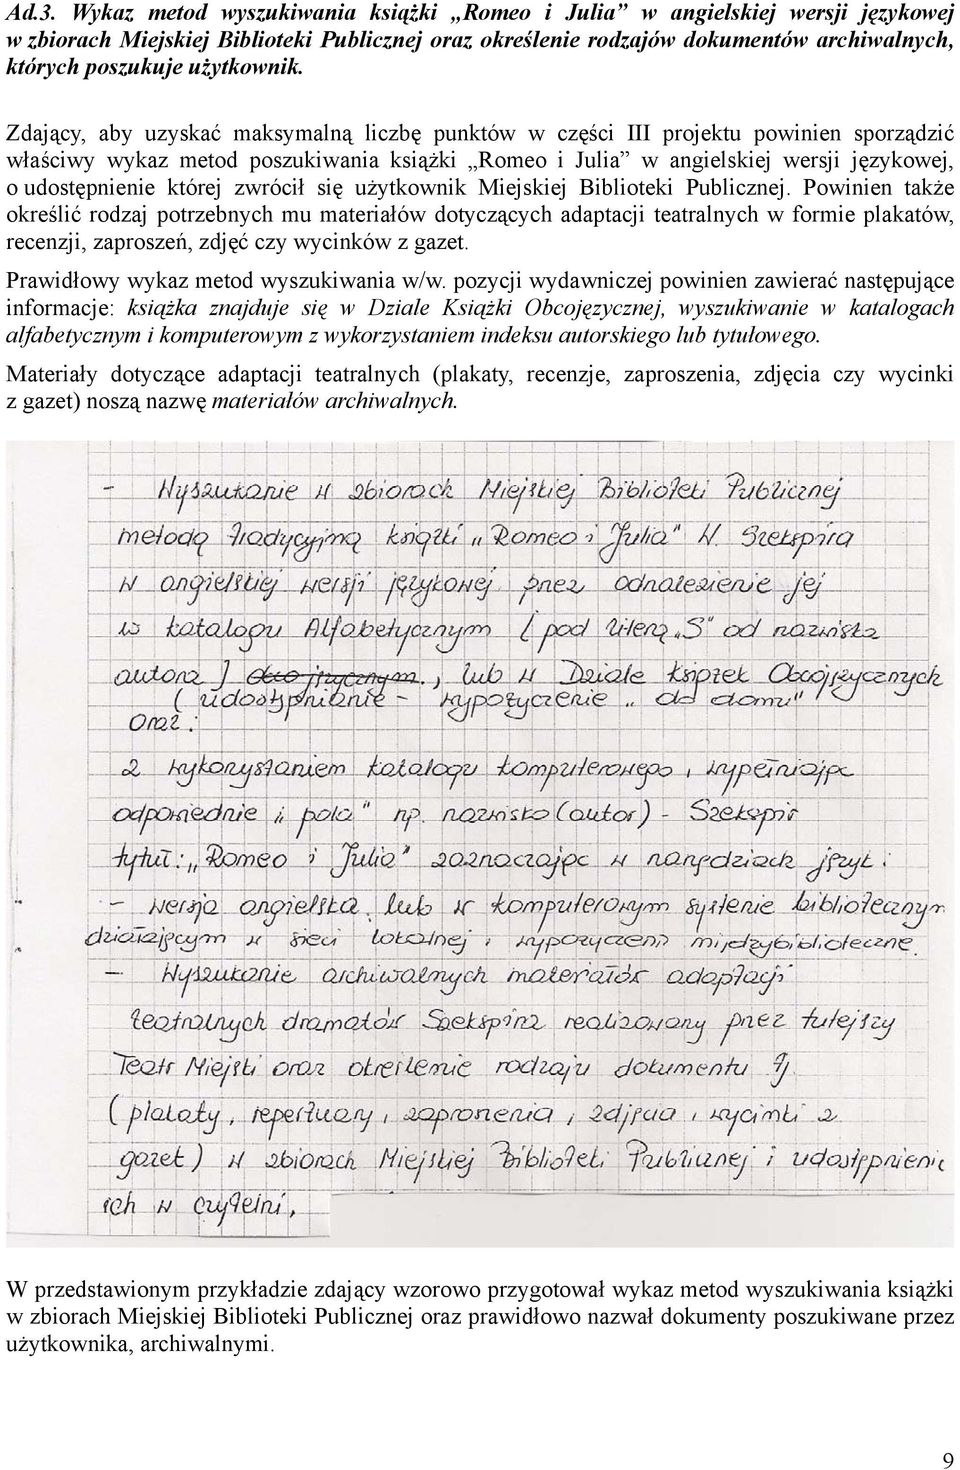 Ad.3. Wykaz metod wyszukiwania książki „Romeo i Julia” w angielskiej wersji językowej
w zbiorach Miejskiej Biblioteki Publicznej oraz określenie rodzajów dokumentów archiwalnych,
których poszukuje użytkownik.
Zdający, aby uzyskać maksymalną liczbę punktów w części III projektu powinien sporządzić
właściwy wykaz metod poszukiwania książki „Romeo i Julia” w angielskiej wersji językowej,
o udostępnienie której zwrócił się użytkownik Miejskiej Biblioteki Publicznej. Powinien także
określić rodzaj potrzebnych mu materiałów dotyczących adaptacji teatralnych w formie plakatów,
recenzji, zaproszeń, zdjęć czy wycinków z gazet.
Prawidłowy wykaz metod wyszukiwania w/w. pozycji wydawniczej powinien zawierać następujące
informacje: książka znajduje się w Dziale Książki Obcojęzycznej, wyszukiwanie w katalogach
alfabetycznym i komputerowym z wykorzystaniem indeksu autorskiego lub tytułowego.
Materiały dotyczące adaptacji teatralnych (plakaty, recenzje, zaproszenia, zdjęcia czy wycinki
z gazet) noszą nazwę materiałów archiwalnych.
- Wyszukanie w zbiorach Miejskiej Biblioteki Publicznej
metodą tradycyjną książki „Romeo i Julia” W. Szekspira
w angielskiej wersji językowej przez odnalezienie jej
w katalogu Alfabetycznym (pod literą „S” od nazwiska
autora) obcojęzycznym., lub w Dziale książek Obcojęzycznych
(udostępnianie - wypożyczenie „do domu”
oraz:
z wykorzystaniem katalogu komputerowego, wypełniając
odpowiednie „pola” np. nazwisko (autor) - Szekspir
tytuł: „Romeo i Julia” zaznaczając w narzędziach język:
- wersja angielska, lub w komputerowym systemie bibliotecznym
działającym w sieci lokalnej i wypożyczeni międzybiblioteczne.
- Wyszukanie archiwalnych materiałów adaptacji
teatralnych dramatów Szekspira realizowany przez tutejszy
Teatr Miejski oraz określenie rodzaju dokumentu tj.
(plakaty, repertuary, zaproszenia, zdjęcia, wycinki z
gazet) w zbiorach Miejskiej Biblioteki Publicznej i udostępnienie
ich w czytelni.
W przedstawionym przykładzie zdający wzorowo przygotował wykaz metod wyszukiwania książki
w zbiorach Miejskiej Biblioteki Publicznej oraz prawidłowo nazwał dokumenty poszukiwane przez
użytkownika, archiwalnymi.
9